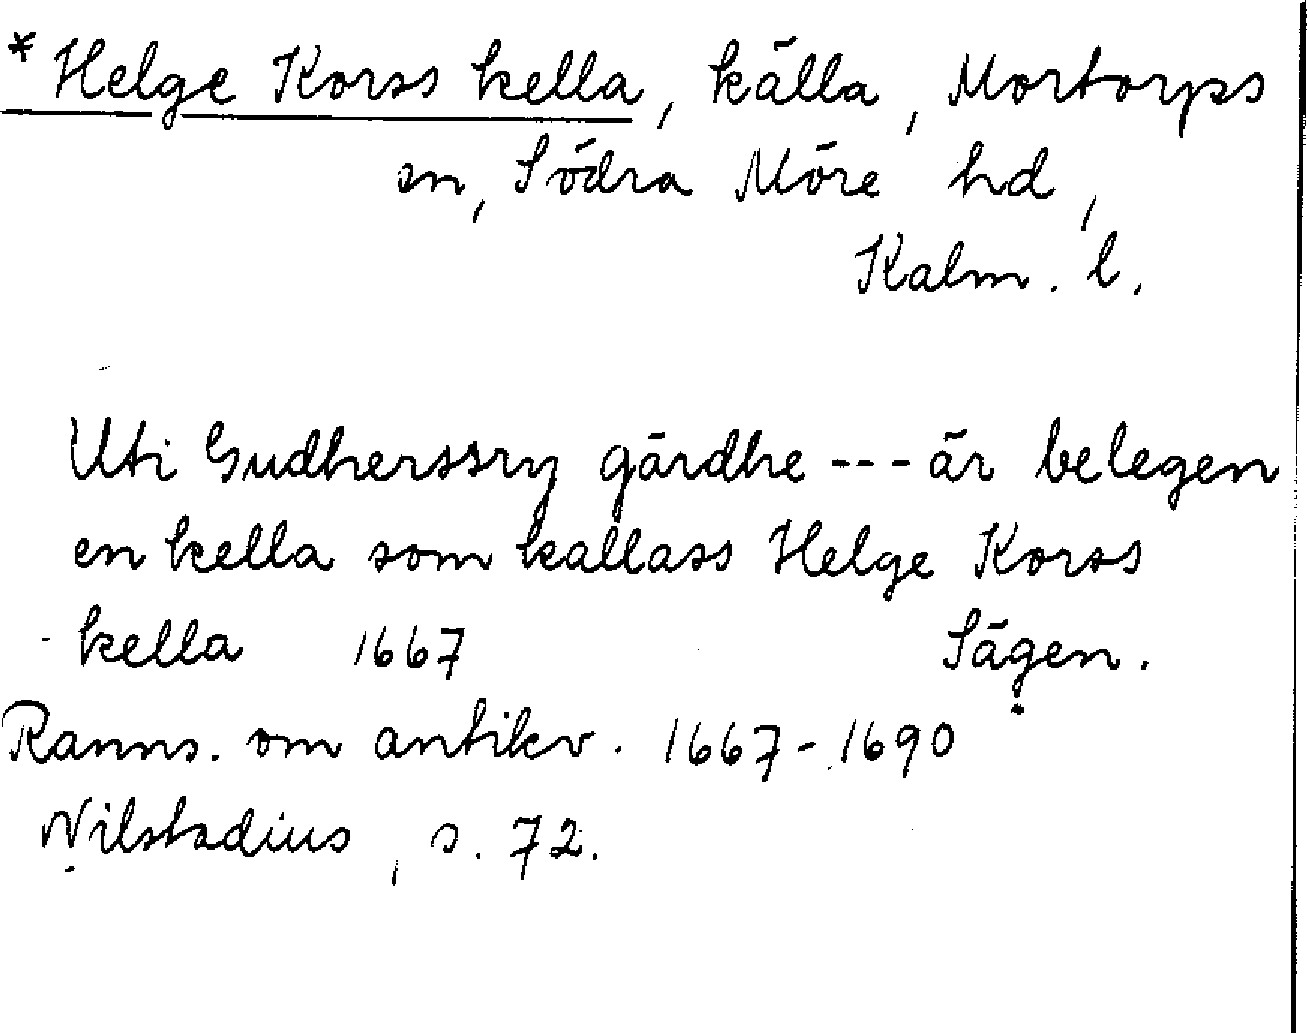 * Helge Korss kella, källa, Mortorps
sn, Södra Möre hd,
Kalm. l.
Uti Gudherssry gärdhe --- är belegen
en kella som kallass Helge Korss
kella 1667 Sägen.
Ranns. om antikv. 1667-1690
Nilstadius, s. 72.